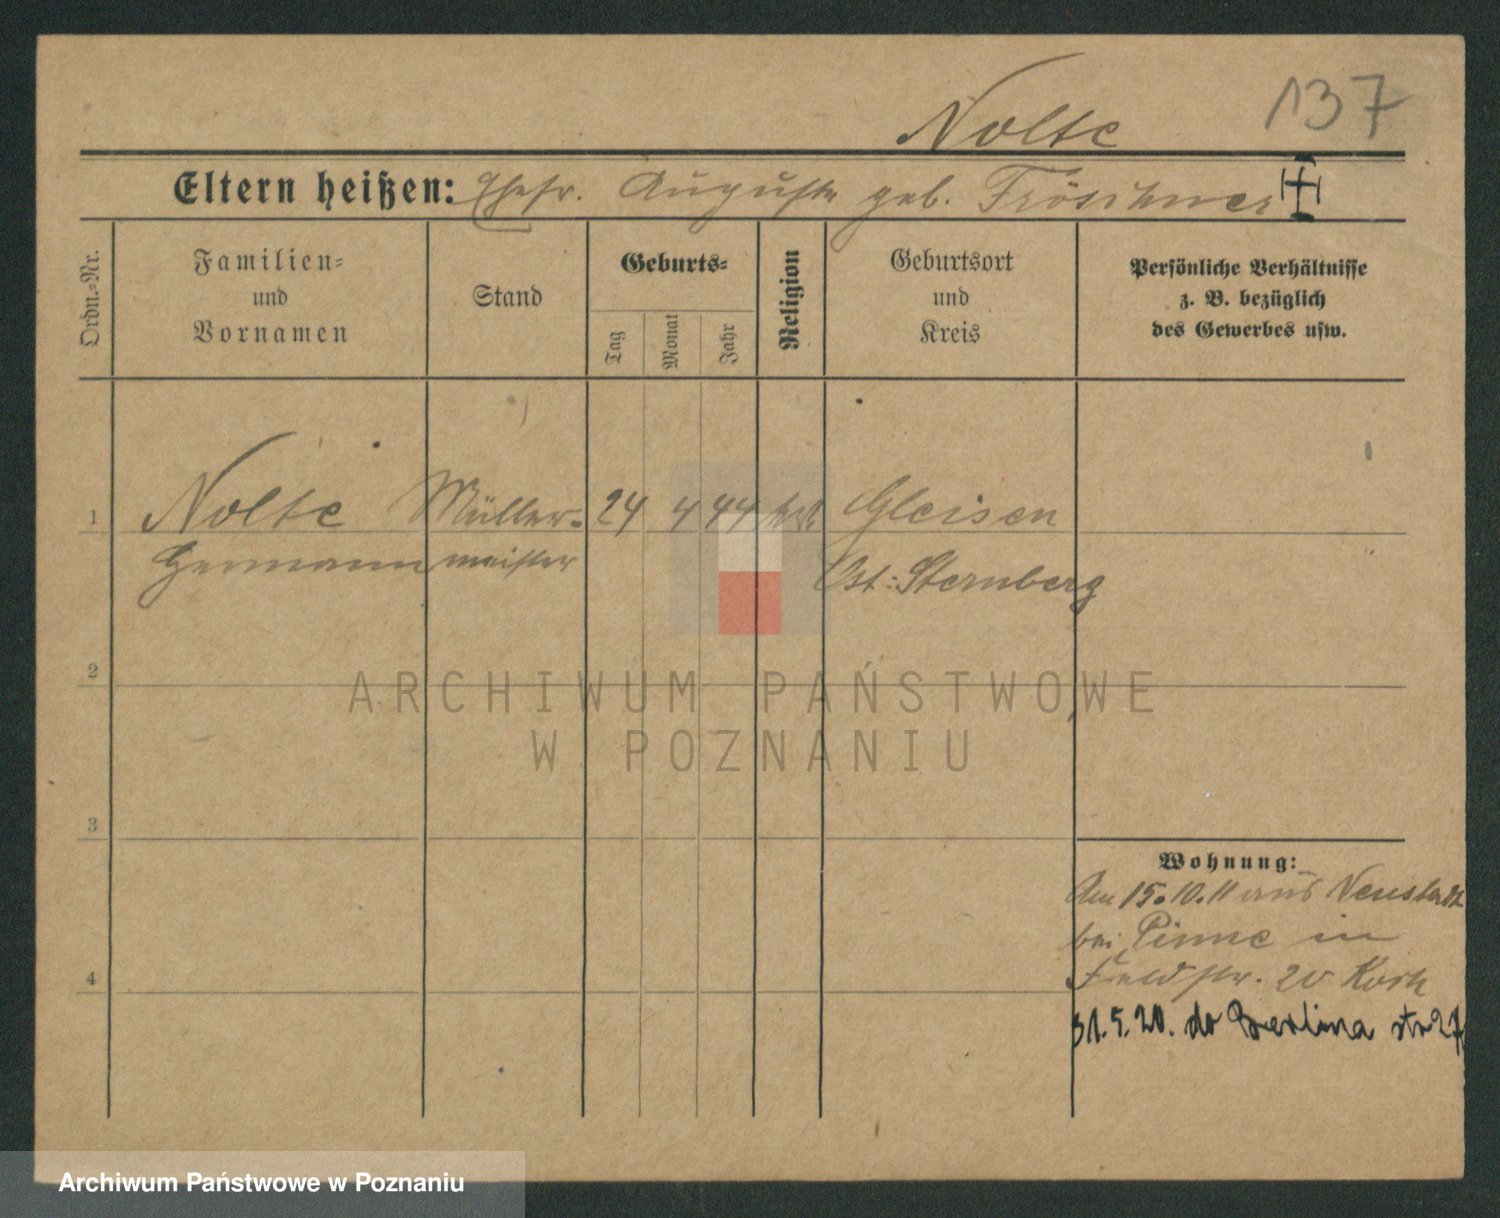 137
Nolte
Eltern heißen: Ehefr. Auguste geb. Fröschner
Ordn.-Nr.
Familien-
und
Vornamen
Stand
Geburts-
Tag
Monat
Jahr
Religion
Geburtsort
und
Kreis
Persönliche Verhältnisse
z. B. bezüglich
des Gewerbes usw.
1 Nolte Müller- 24 4 44 Gleisen
Hermann meister Ost-Sternberg
2
3
4
Wohnung:
Am 15.10.11 aus Neustadt
bei Pinne in
Feldstr. 20 Koch
31.5.20. do Berlina str 27
ARCHIWUM PAŃSTWOWE
W POZNANIU
Archiwum Państwowe w Poznaniu